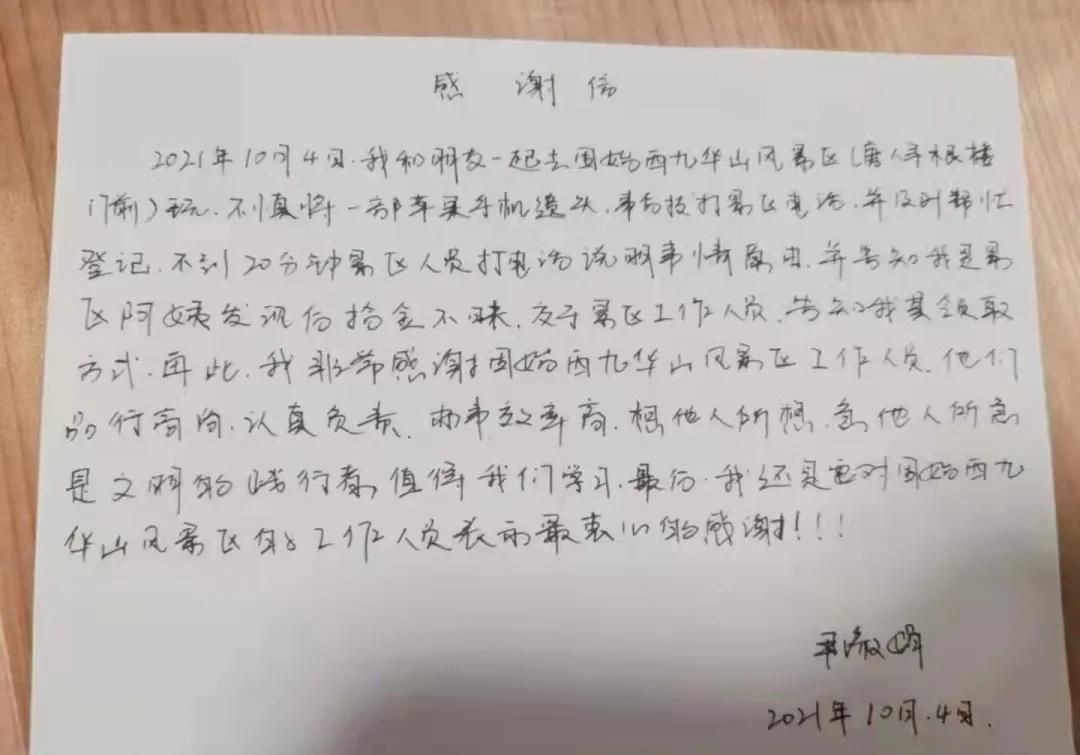 感 谢 信
2021年10月4日.我和朋友一起去固始西九华山风景区(唐人寻根楼
门前)玩.不慎将一部苹果手机遗失.事后拨打景区电话.并及时帮忙
登记.不到20分钟景区人员打电话说明事情原由.并告知我是景
区阿姨发现后拾金不昧.交于景区工作人员.告知我其领取
方式.再此.我非常感谢固始西九华山风景区工作人员.他们
品行高尚.认真负责.办事效率高.想他人所想.急他人所急
是文明的践行者.值得我们学习.最后.我还是要对固始西九
华山风景区的工作人员表示最衷心的感谢!!!
2021年10月.4日.